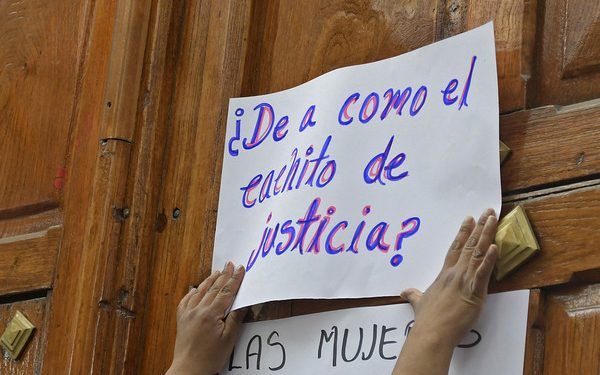 ¿De a como el
cachito de
justicia?
LAS MUJERES